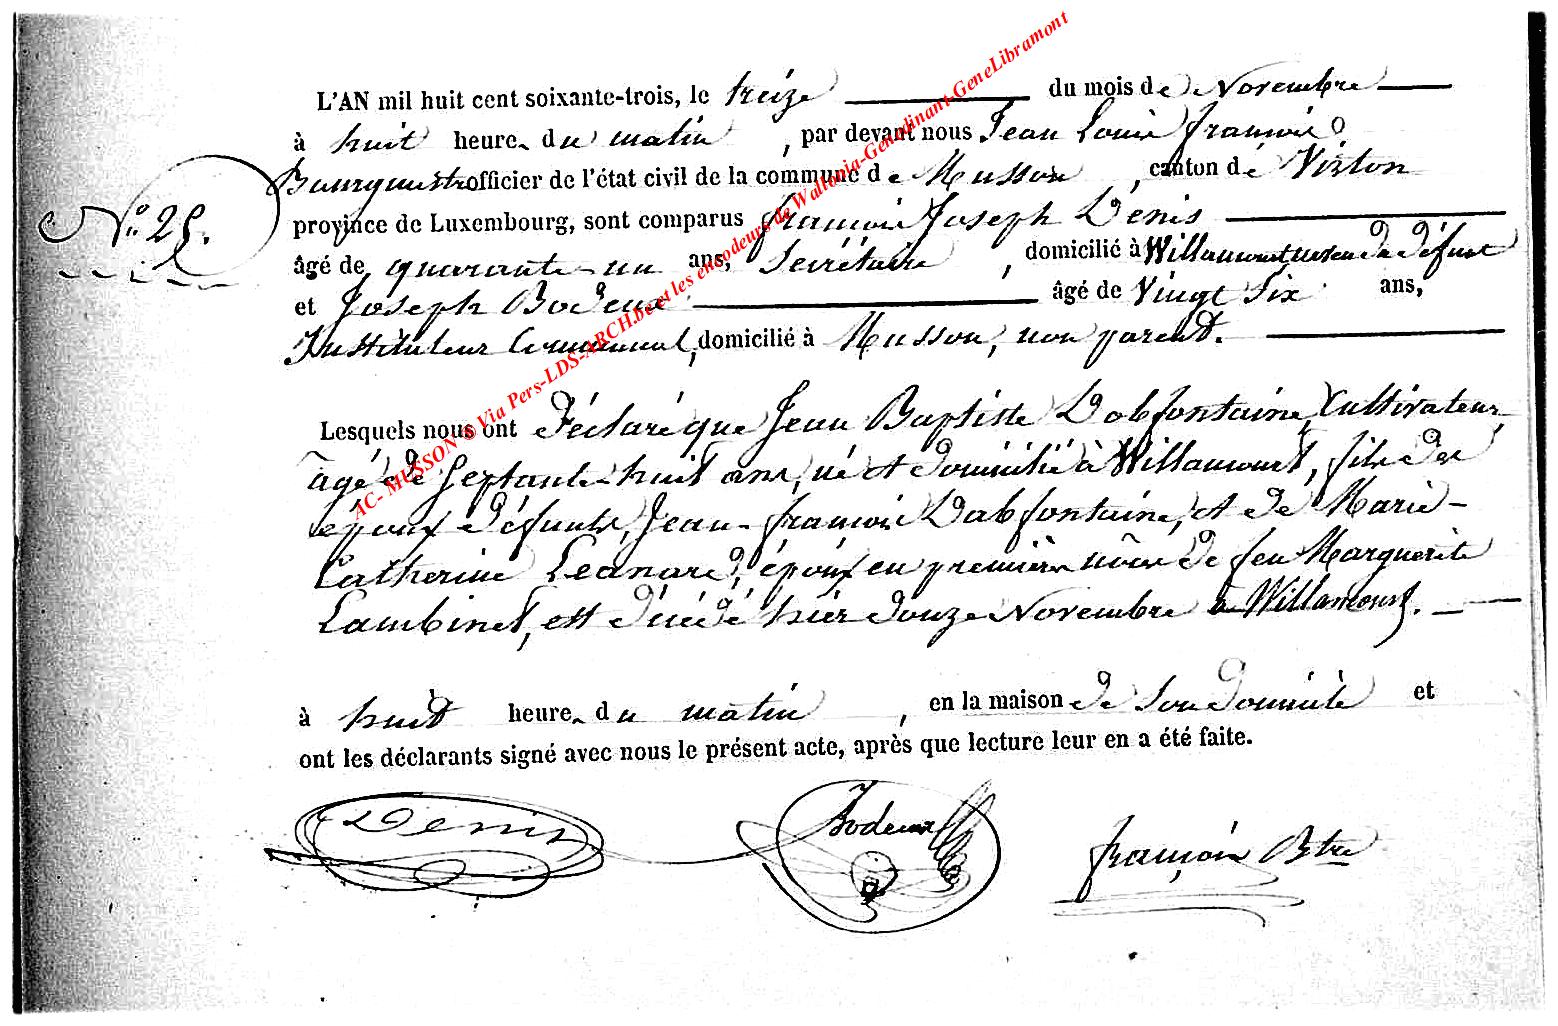 L'AN mil huit cent soixante-trois, le treize du mois de Novembre
à huit heure du matin, par devant nous Jean Louis françois
Bourguestre officier de l'état civil de la commune de Musson, canton de Virton
N° 25.
province de Luxembourg, sont comparus françois Joseph Denis
âgé de quarante-un ans, Secrétaire, domicilié à Willancourt neveu du défunt
et Joseph Bodeux âgé de Vingt Six ans,
Instituteur Communal, domicilié à Musson, non parent.
Lesquels nous ont déclaré que Jean Baptiste Dabfontaine, Cultivateur,
âgé de Septante-huit ans, né et domicilié à Willancourt, fils des
époux défunts, Jean-françois Dabfontaine, et de Marie-
Catherine Léanard, époux en première noce de feu Marguerite
Lambinet, est décédé hier douze Novembre à Willancourt.
à huit heure du matin, en la maison de Son domicile et
ont les déclarants signé avec nous le présent acte, après que lecture leur en a été faite.
Denis Bodeux françois Btre
AC- MUSSON & Via Pers-LDS-ARCH.be et les encodeurs de Wallonia-Genedinant-GeneLibramont